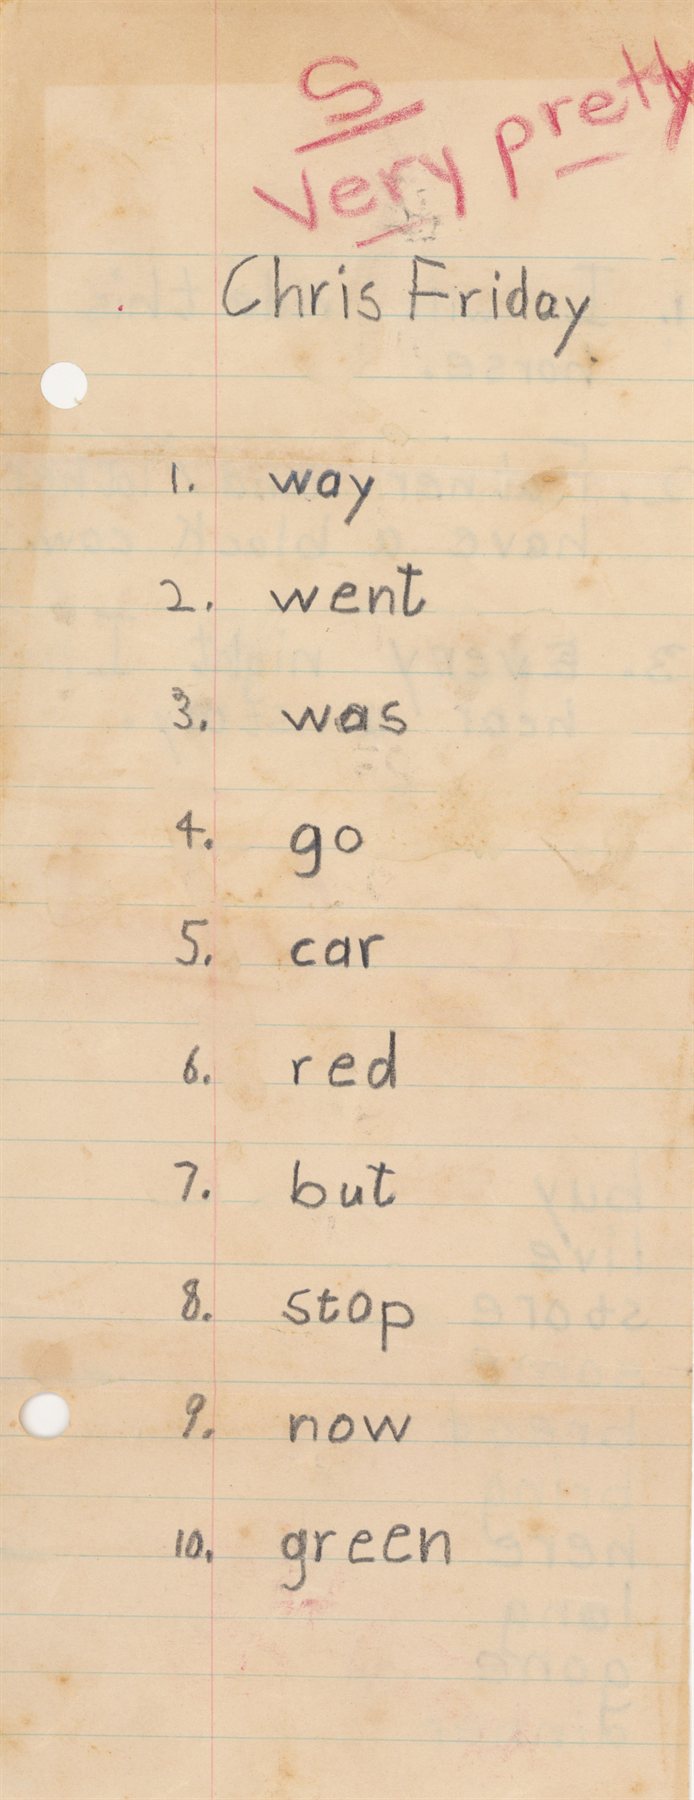 S
very pretty
Chris Friday
1. way
2. went
3. was
4. go
5. car
6. red
7. but
8. stop
9. now
10. green